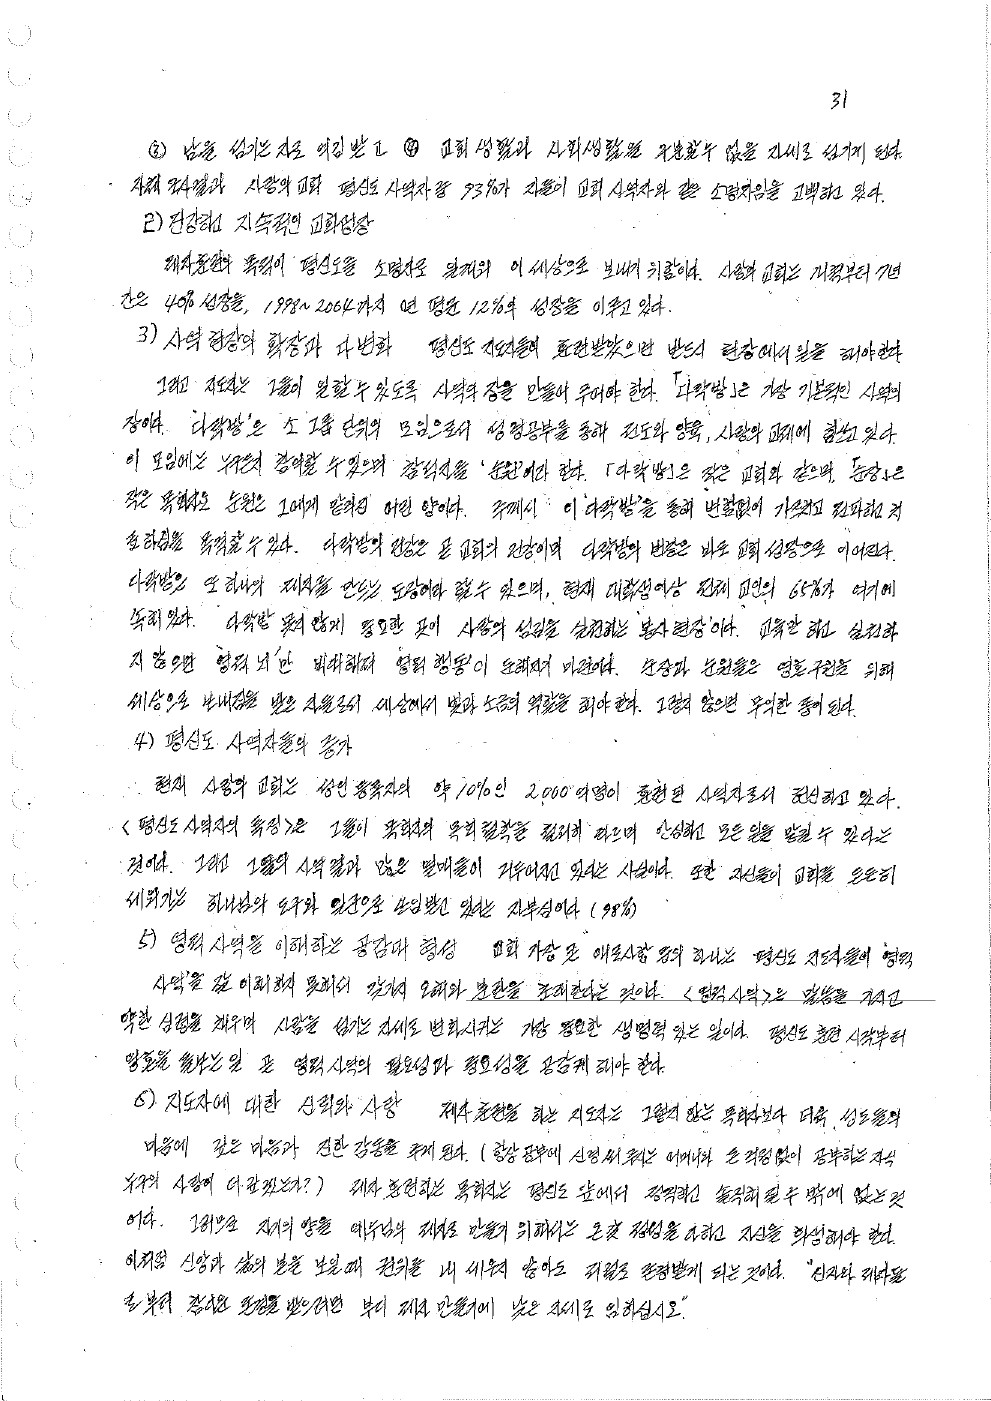 31
③ 남을 섬기는 자로 여김 받고 ④ 교회생활과 사회생활을 구분할 수 없을 자세로 섬기게 된다.
자체 조사결과 사랑의 교회 평신도 사역자 중 93%가 자들이 교회 사역자와 같은 소명자임을 고백하고 있다.
2) 건강하고 지속적인 교회성장
제자훈련의 목적이 평신도를 소명자로 일깨워 이 세상으로 보내기 위함이다. 사랑의 교회는 개척부터 7년
간은 40% 성장을, 1998~2004까지 연 평균 12%의 성장을 이루고 있다.
3) 사역현장의 확장과 다변화 평신도 지도자들이 훈련받았으면 반드시 현장에서 일을 해야 한다
그리고 지도자는 그들이 일할 수 있도록 사역의 장을 만들어 주어야 한다. 「다락방」은 가장 기본적인 사역의
장이다. '다락방'은 소그룹 단위의 모임으로서 성경공부를 통해 전도와 양육, 사랑의 교제에 힘쓰고 있다.
이 모임에는 누구든지 참여할 수 있으며 참석자를 '순원'이라 한다. 「다락방」은 작은 교회와 같으며, 「순장」은
작은 목회자요 순원은 그에게 맡겨진 어린 양이다. 주께서 이 '다락방'을 통해 변함없이 가르치고 전파하고 치
료하심을 목격할 수 있다. 다락방의 건강은 곧 교회의 건강이며 다락방의 번창은 바로 교회성장으로 이어진다.
다락방은 또 하나의 제자를 만드는 도장이라 할 수 있으며, 현재 대학생이상 전체 교인의 65%가 여기에
속해 있다. 다락방 못지 않게 중요한 곳이 사랑의 섬김을 실천하는 '봉사현장'이다. 교육만 하고 실천하
지 않으면 '영적 뇌'만 비대해져 '영적 행동'이 둔해지기 마련이다. 순장과 순원들은 영혼구원을 위해
세상으로 보내심을 받은 자들로서 세상에서 빛과 소금의 역할을 해야 한다. 그렇지 않으면 무익한 종이 된다.
4) 평신도 사역자들의 증가
현재 사랑의 교회는 성인 등록자의 약 10%인 2,000여명이 훈련된 사역자로서 헌신하고 있다.
<평신도 사역자의 특징>은 그들이 목회자의 목회철학을 철저히 따르며 안심하고 모든 일을 맡길 수 있다는
것이다. 그리고 그들의 사역결과 많은 열매들이 거두어지고 있다는 사실이다. 또한 자신들이 교회를 든든히
세워가는 하나님의 도구와 일꾼으로 쓰임받고 있다는 자부심이다 (98%)
5) 영적 사역을 이해하는 공감대 형성 교회 가장 큰 애로사항 중의 하나는 평신도 지도자들이 '영적
사역'을 잘 이해하지 못해서 갖가지 오해와 반한을 초래한다는 것이다. <영적사역>은 말씀을 가지고
약한 심령을 채우며 사람을 섬기는 자세로 변화시키는 가장 중요한 생명력 있는 일이다. 평신도 훈련 시작부터
영혼을 돌보는 일 곧 영적 사역의 필요성과 중요성을 공감케 해야 한다.
6) 지도자에 대한 신뢰와 사랑 제자훈련을 하는 지도자는 그렇지 않는 목회자보다 더욱 성도들의
마음에 깊은 믿음과 진한 감동을 주게 된다. (항상 공부에 신경써주는 어머니와 는 걱정없이 공부하는 자식
누구의 사랑이 더 큰 것인가?) 제자훈련하는 목회자는 평신도 앞에서 정직하고 솔직해 질 수 밖에 없는 것
이다. 그러므로 자기의 양을 예수님의 제자로 만들기 위해서는 온갖 정성을 다하고 자신을 희생해야 한다.
이처럼 신앙과 삶의 본을 보일 때 권위를 내세우지 않아도 저절로 존경받게 되는 것이다. "신자와 제자들
로부터 참다운 존경을 받으려면 부디 제자 만들기에 낮은 자세로 임하십시오."